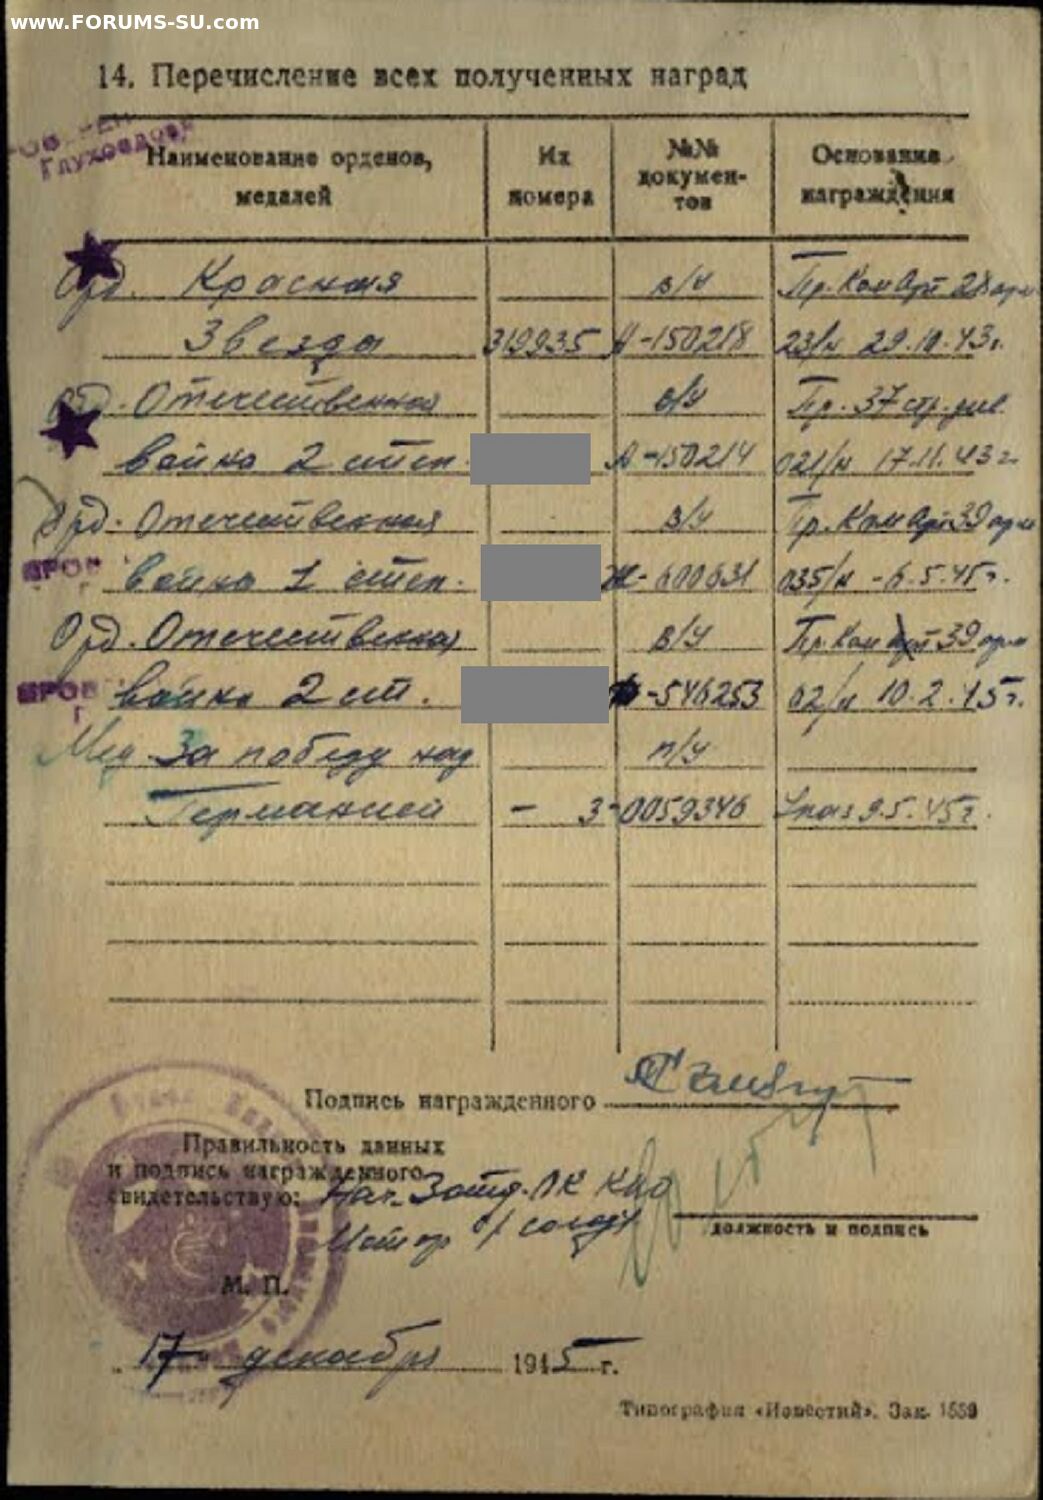 www.FORUMS-SU.com
14. Перечисление всех полученных наград
Глуховдова
Наименование орденов, медалей
Их номера
№№ докумен-тов
Основание награждения
Орд. Красная в/ч Пр. Ком Арт 28 арм
Звезда 319935 А-150218 23/н 29.10.43г.
Орд. Отечественная в/ч Пр. 37 стр. див
война 2 степ. А-150214 021/н 17.11.43г
Орд. Отечественная в/ч Пр. Ком Арт 39 арм
война 1 степ. Ж-600631 035/н -6.5.45г.
Орд. Отечественная в/ч Пр. Ком арт 39 арм
ПРОВ война 2 ст. -546253 02/н 10.2.45г.
Мед За победу над п/ч
Германией - З-0059346 Указ 9.5.45г.
Подпись награжденного
Правильность данных
и подпись награжденного
свидетельствую: Нач.
Майор
должность и подпись
М. П.
„17" декабря 1945 г.
Типография «Известий». Зак. 1539